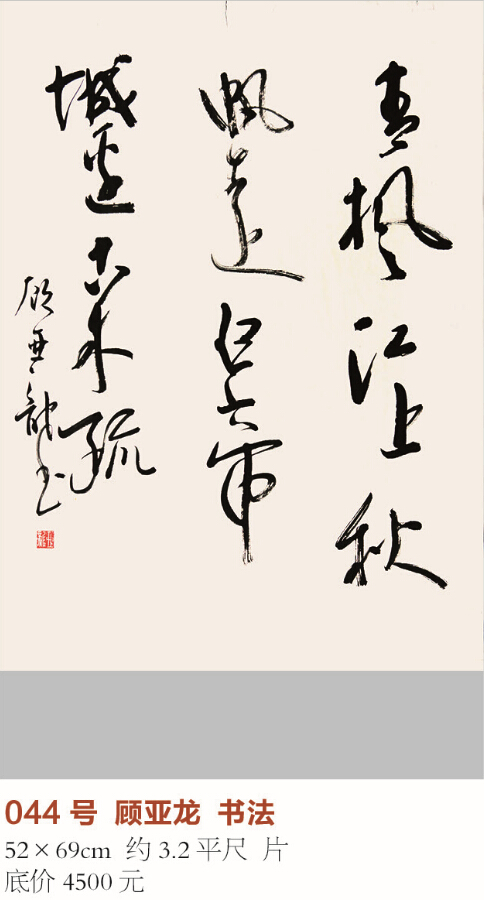 青楓江上秋
帆遠白帝
城邊古木疏
顧亞龍書
044号 顾亚龙 书法
52×69cm 约3.2平尺 片
底价4500元